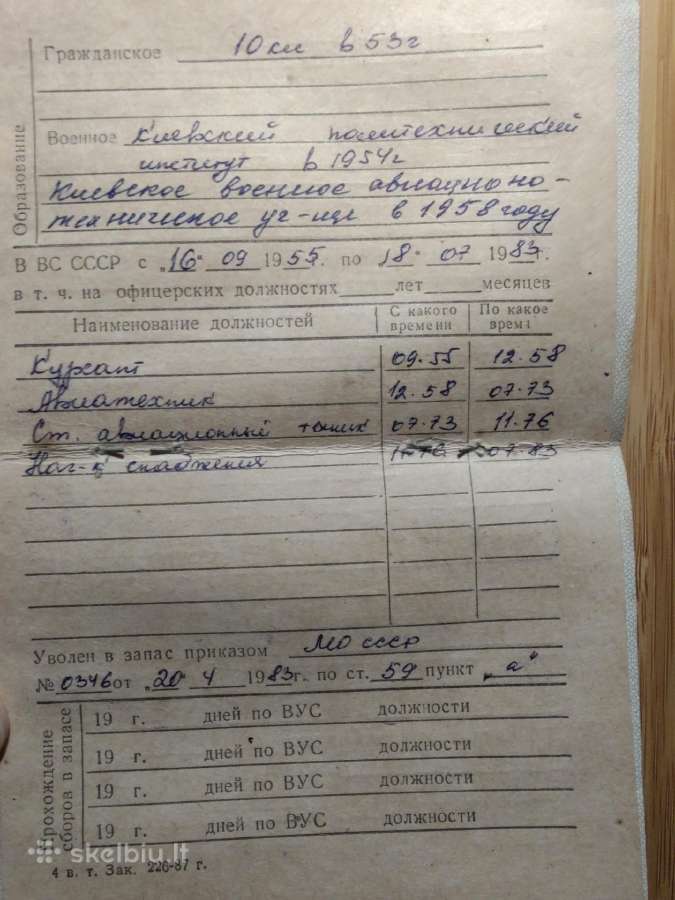 Образование
Гражданское 10 кл в 53 г
Военное Киевский политехнический
институт в 1954 г
Киевское военное авиационо-
техническое уч-ище в 1958 году
В ВС СССР с „16“ 09 1955 г. по 18 07 1983 г.
в т. ч. на офицерских должностях лет месяцев
Наименование должностей С какого времени По какое врем
Курсант 09.55 12.58
Авиатехник 12.58 07.73
Ст. авиационный техник 07.73 11.76
Нач-к снабжения 11.76 07.83
Уволен в запас приказом МО СССР
№ 0346 от „20“ 4 1983 г. по ст. 59 пункт „а“
Прохождение сборов в запасе
19 г. дней по ВУС должности
19 г. дней по ВУС должности
19 г. дней по ВУС должности
19 г. дней по ВУС должности
4 в. т. Зак. 226-87 г.
skelbiu.lt